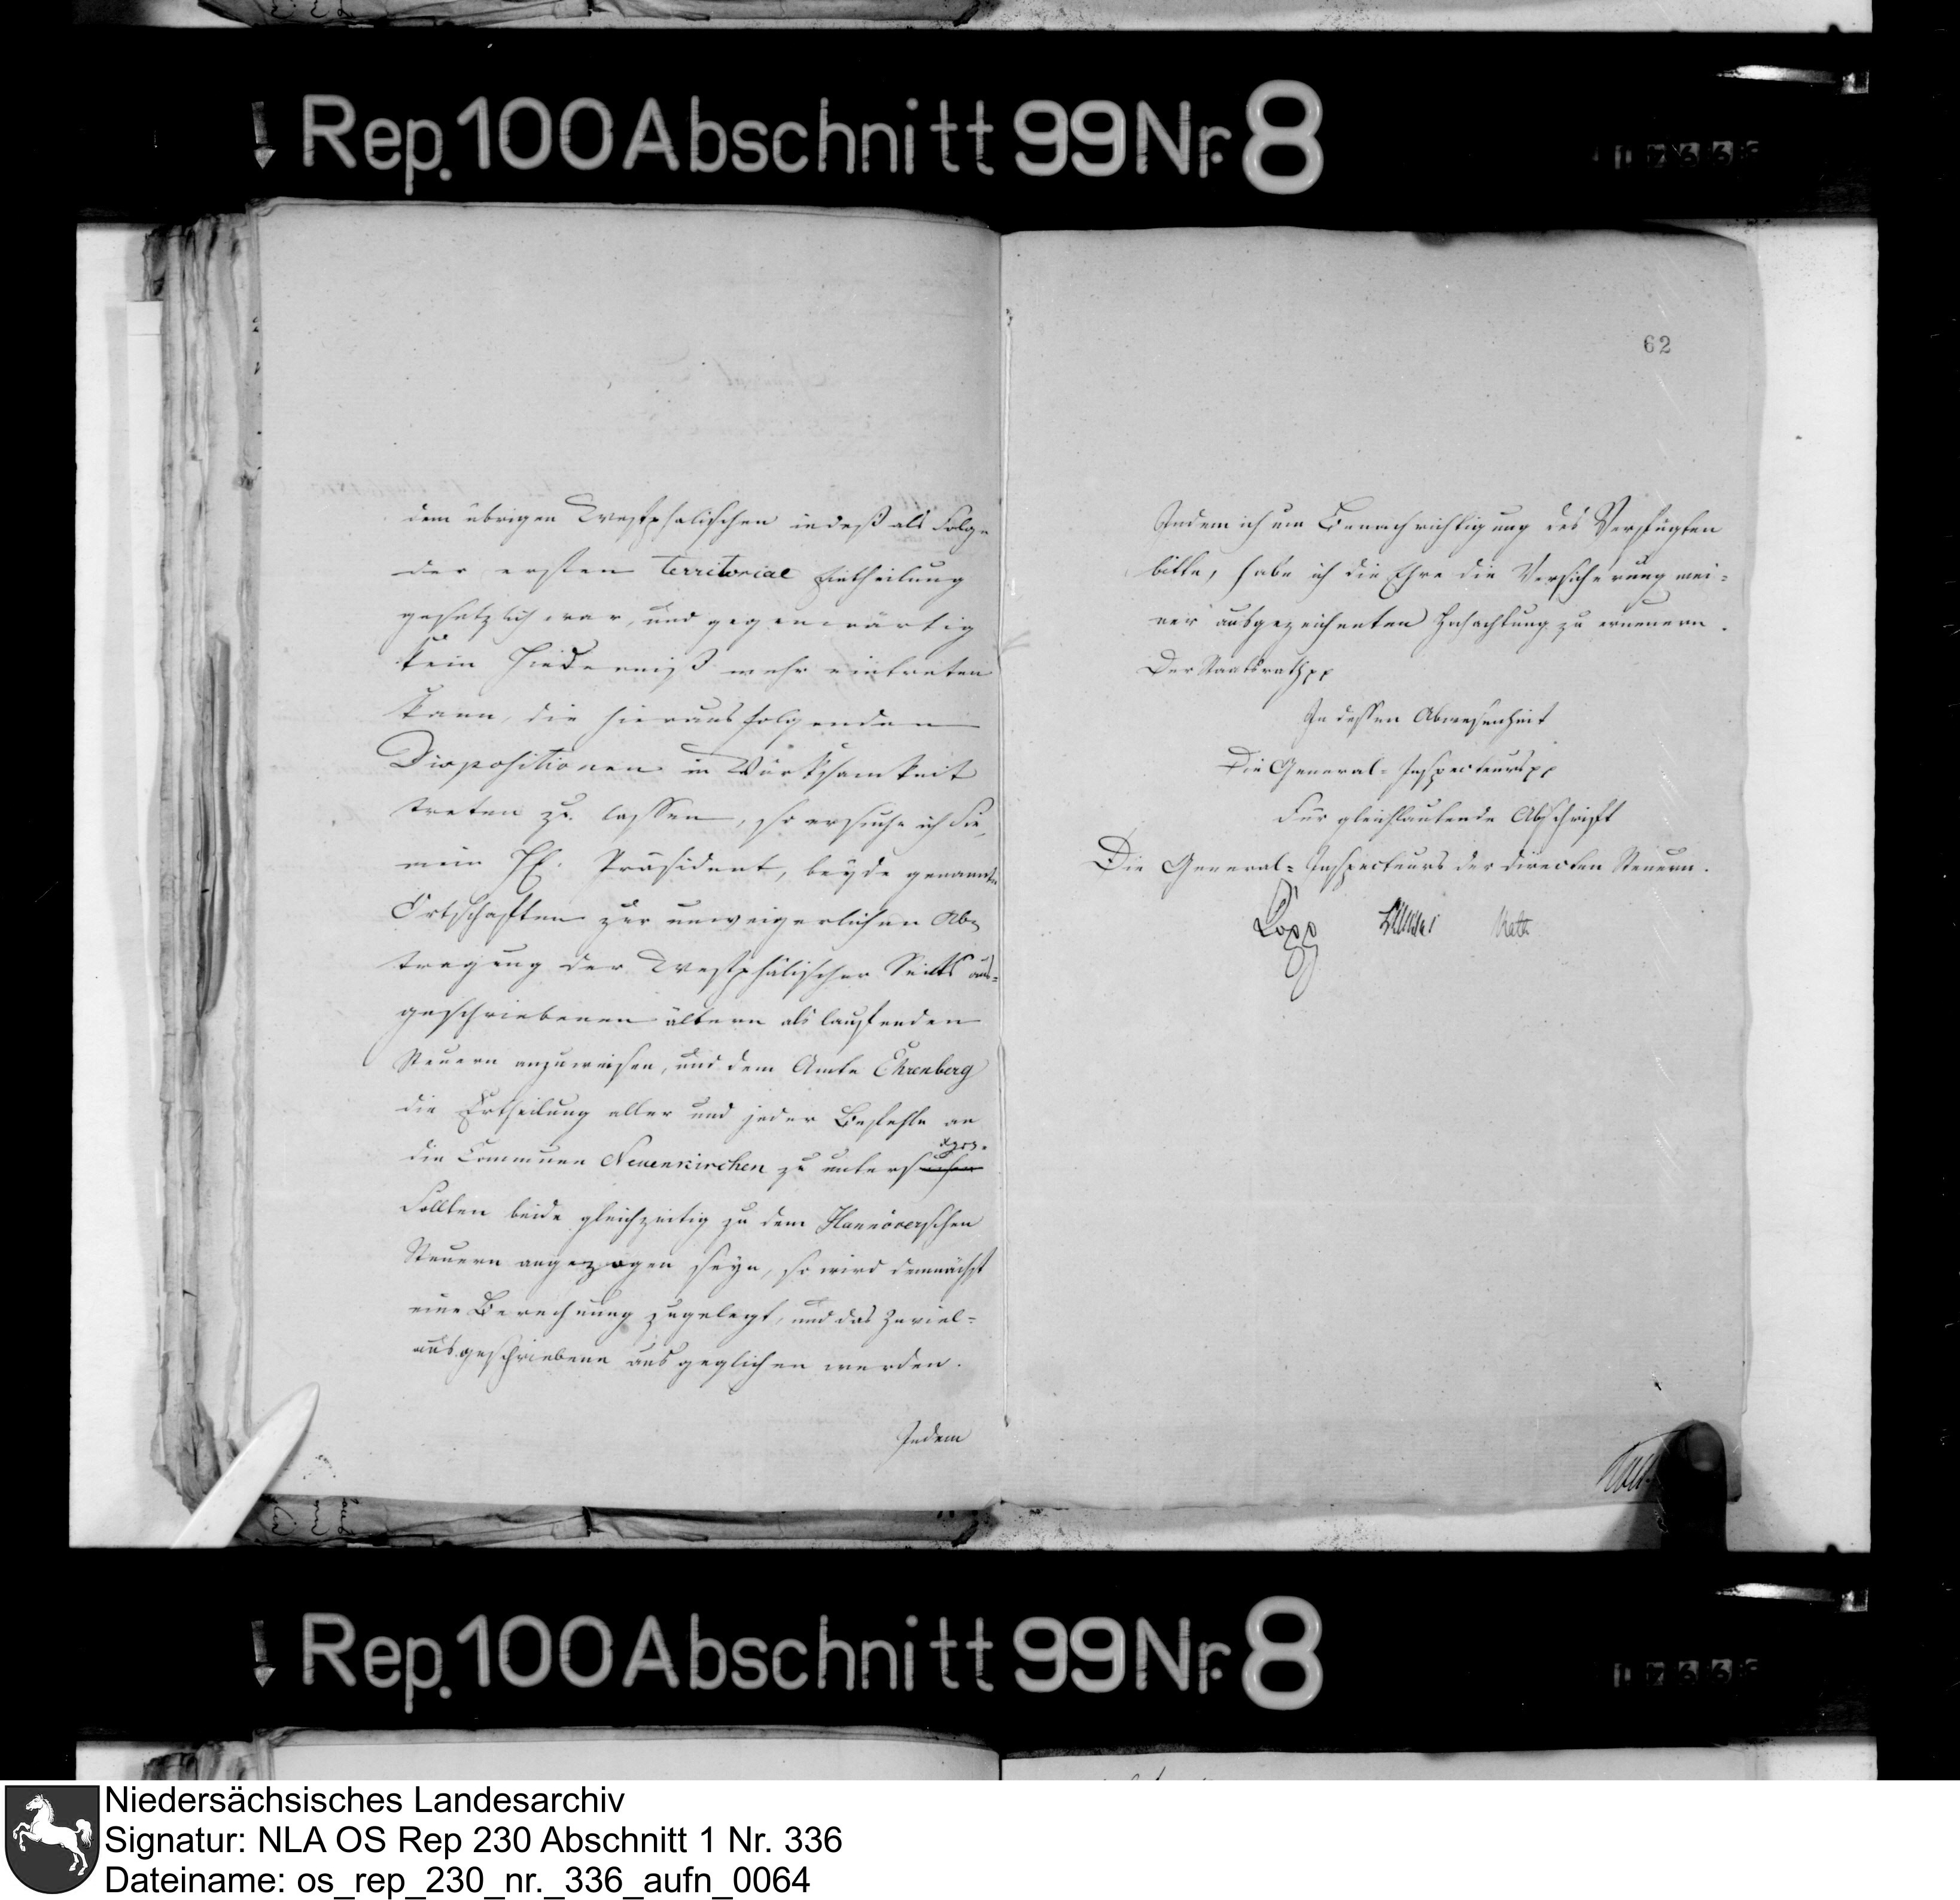 Rep. 100 Abschnitt 99 Nr. 8
62
dem übrigen Westphalischen indeß als Folge
der ersten Territorial Eintheilung
gesetzlich war, und gegenwärtig
kein Hinderniß mehr eintreten
kann, die hieraus folgenden
Dispositionen in Würksamkeit
treten zu lassen, so ersuche ich Sie,
mein H. Präsident, beyde genannte
Ortschaften zur unweigerlichen Ab-
tragung der Westphälischer Seits aus-
geschriebenen ältern als laufenden
Steuern anzuweisen, und dem Amte Ehrenberg
die Ertheilung aller und jeder Befehle an
die Commune Neuenkirchen zu unters
Sollten beide gleichzeitig zu dem Hannöverschen
Steuern angezogen seyn, so wird demnächst
eine Berechnung zugelegt, und das Zuviel-
ausgeschriebene ausgeglichen werden.
Indem
Indem ich um Benachrichtigung des Verfügten
bitte, habe ich die Ehre die Versicherung mei-
ner ausgezeichneten Hochachtung zu erneuern.
Der Staatsrath pp
In dessen Abwesenheit
Die General-Inspecteurs pp
Für gleichlautende Abschrift
Die General-Inspecteurs der directen Steuern.
Rep. 100 Abschnitt 99 Nr. 8
Niedersächsisches Landesarchiv
Signatur: NLA OS Rep 230 Abschnitt 1 Nr. 336
Dateiname: os_rep_230_nr._336_aufn_0064